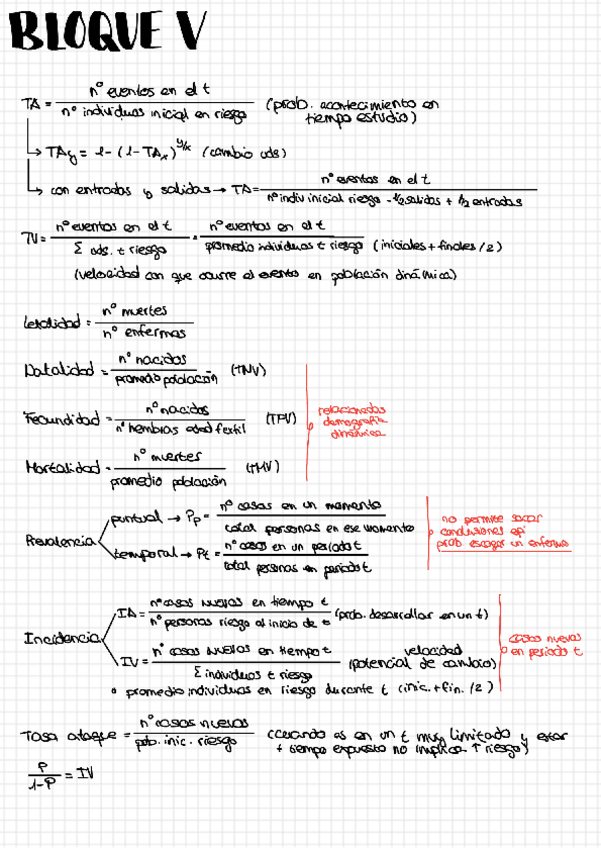 BLOQUE V
TA = nº eventos en el t / nº individuos inicial en riesgo (prob. acontecimiento en tiempo estudio)
TAy = 1 - (1 - TAx)^y/x (cambio uds)
con entradas y salidas → TA = nº eventos en el t / nº indiv inicial riesgo - 1/2 salidas + 1/2 entradas
TV = nº eventos en el t / Σ uds. t riesgo = nº eventos en el t / promedio individuos t riesgo (iniciales + finales / 2)
(velocidad con que ocurre el evento en población dinámica)
Letalidad = nº muertes / nº enfermas
Natalidad = nº nacidos / promedio población (TNV)
Fecundidad = nº nacidos / nº hembras edad fertil (TFV)
relacionadas demografia dinámica
Mortalidad = nº muertes / promedio población (TMV)
Prevalencia
puntual → Pp = nº casos en un momento / total personas en ese momento
temporal → Pt = nº casos en un periodo t / total personas en periodo t
no permite sacar conclusiones epi
prob escoger un enfermo
Incidencia
IA = nº casos nuevos en tiempo t / nº personas riesgo al inicio de t (prob. desarrollar en un t)
IV = nº casos nuevos en tiempo t / Σ individuos t riesgo velocidad (potencial de cambio)
o promedio individuos en riesgo durante t (inic. + fin. / 2)
casos nuevos en periodo t
Tasa ataque = nº casos nuevos / pob. inic. riesgo (cuando es en un t muy limitado y estar + tiempo expuesto no implica ↑ riesgo)
P / 1-P = IV